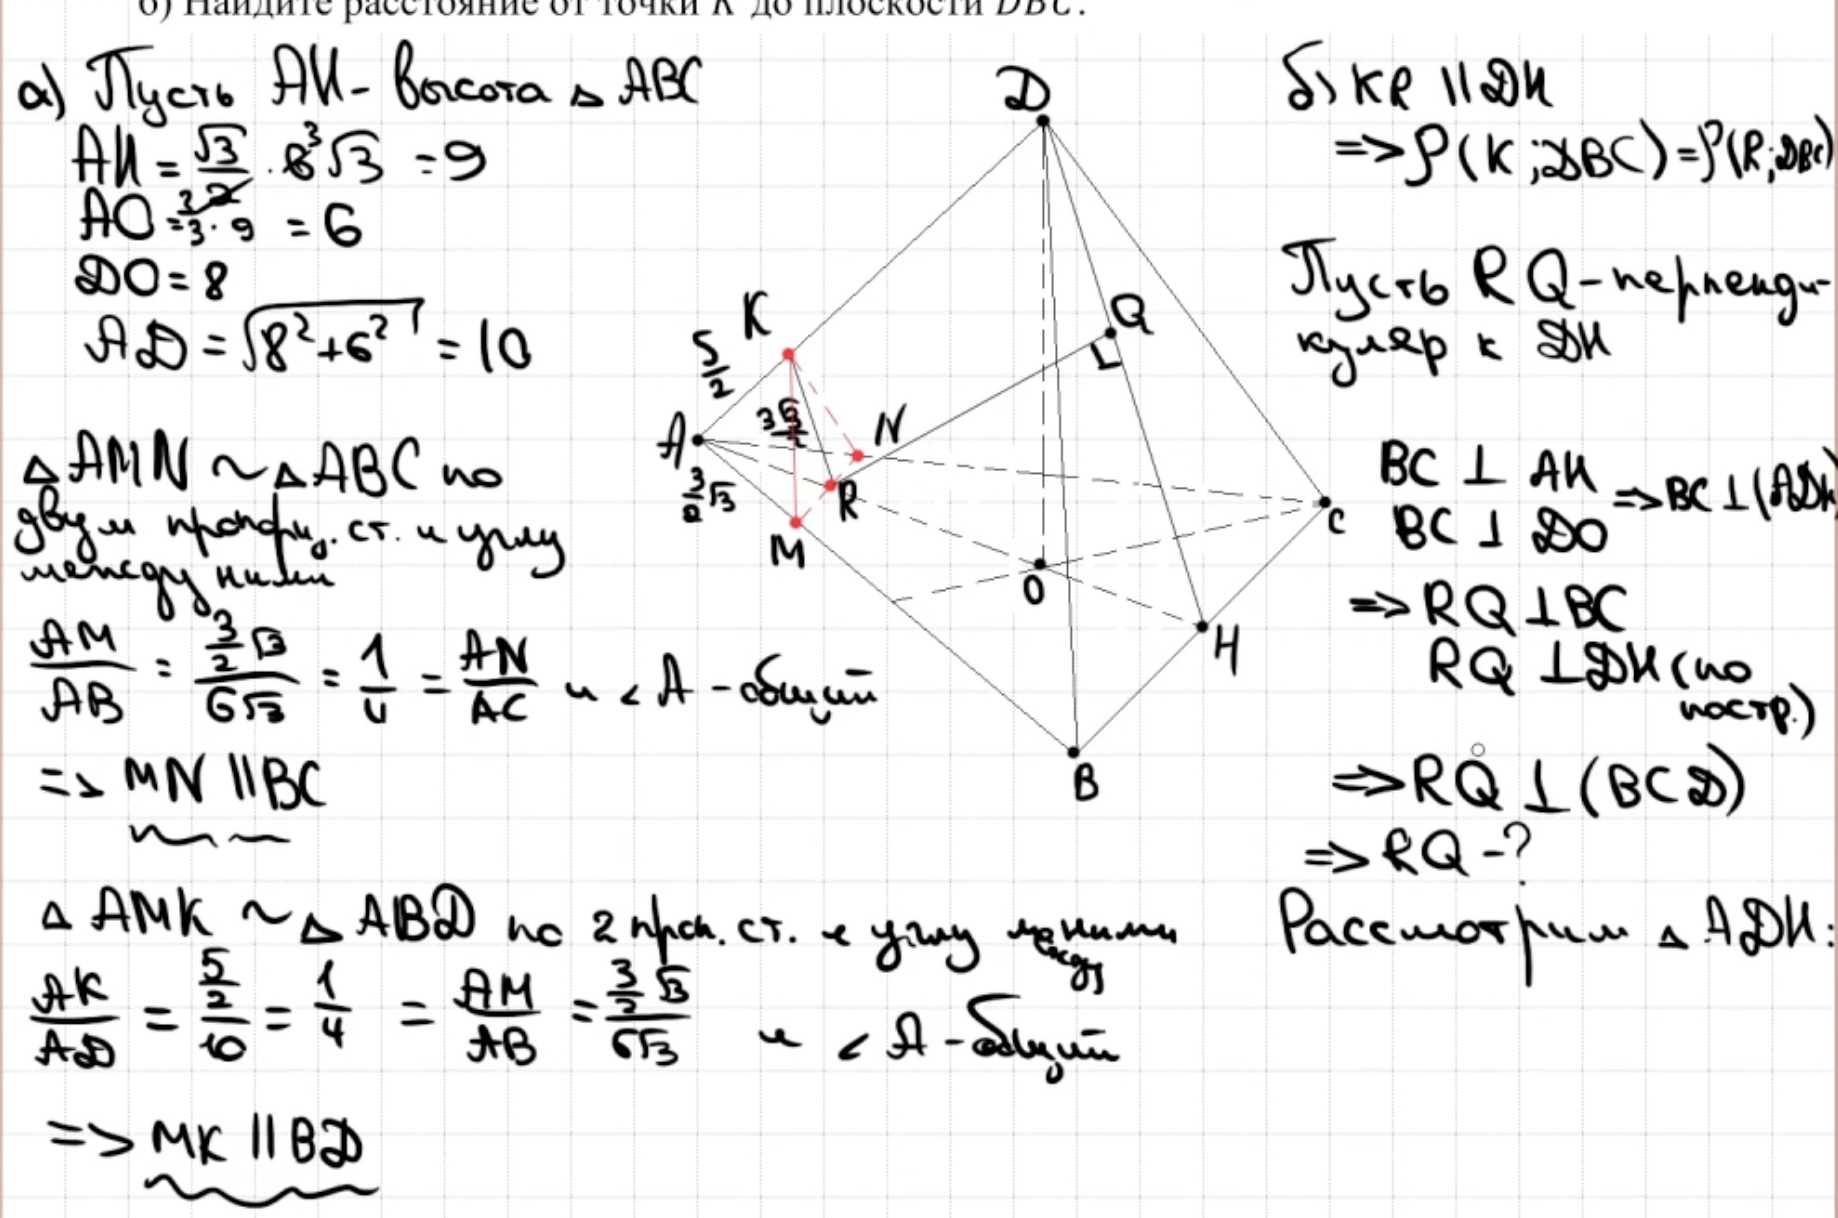 б) Найдите расстояние от точки K до плоскости DBC.
а) Пусть AH - высота △ ABC
AH = √3/2 · 6³√3 = 9
AO = 2/3 · 9 = 6
DO = 8
AD = √(8² + 6²) = 10
△ AMN ~ △ ABC по
двум пропорц. ст. и углу
между ними
AM/AB = (3/2 √3)/(6√3) = 1/4 = AN/AC и ∠ A - общий
=> MN || BC
△ AMK ~ △ ABD по 2 проп. ст. и углу между ними
AK/AD = (5/2)/10 = 1/4 = AM/AB = (3/2 √3)/(6√3) и ∠ A - общий
=> MK || BD
D
K
5/2
Q
A
N
3/2 √3
R
M
C
O
H
B
б) KR || DH
=> ρ(K; DBC) = ρ(R; DBC)
Пусть RQ - перпенди-
куляр к DH
BC ⊥ AH
BC ⊥ DO
=> BC ⊥ (ADH)
=> RQ ⊥ BC
RQ ⊥ DH (по
постр.)
=> RQ ⊥ (BCD)
=> RQ - ?
Рассмотрим △ ADH: